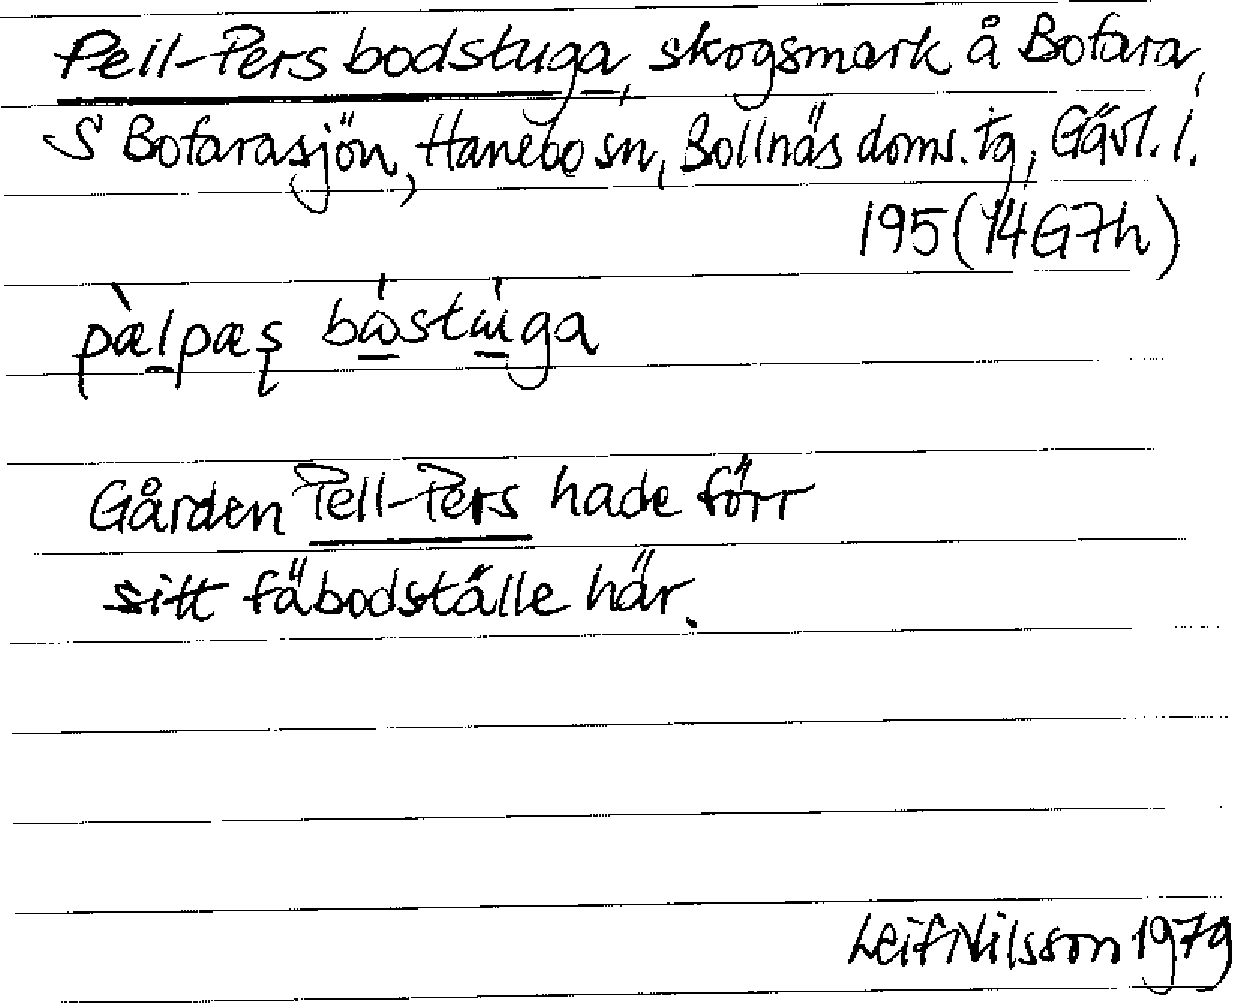 Pell-Pers bodstuga, skogsmark å Bofara,
S Bofarasjön, Hanebo sn, Bollnäs doms. tg, Gävl. l.
195 (14G7h)
pæ̀lpæs bɷ́stɯ́ga
Gården Pell-Pers hade förr
sitt fäbodställe här.
Leif Nilsson 1979